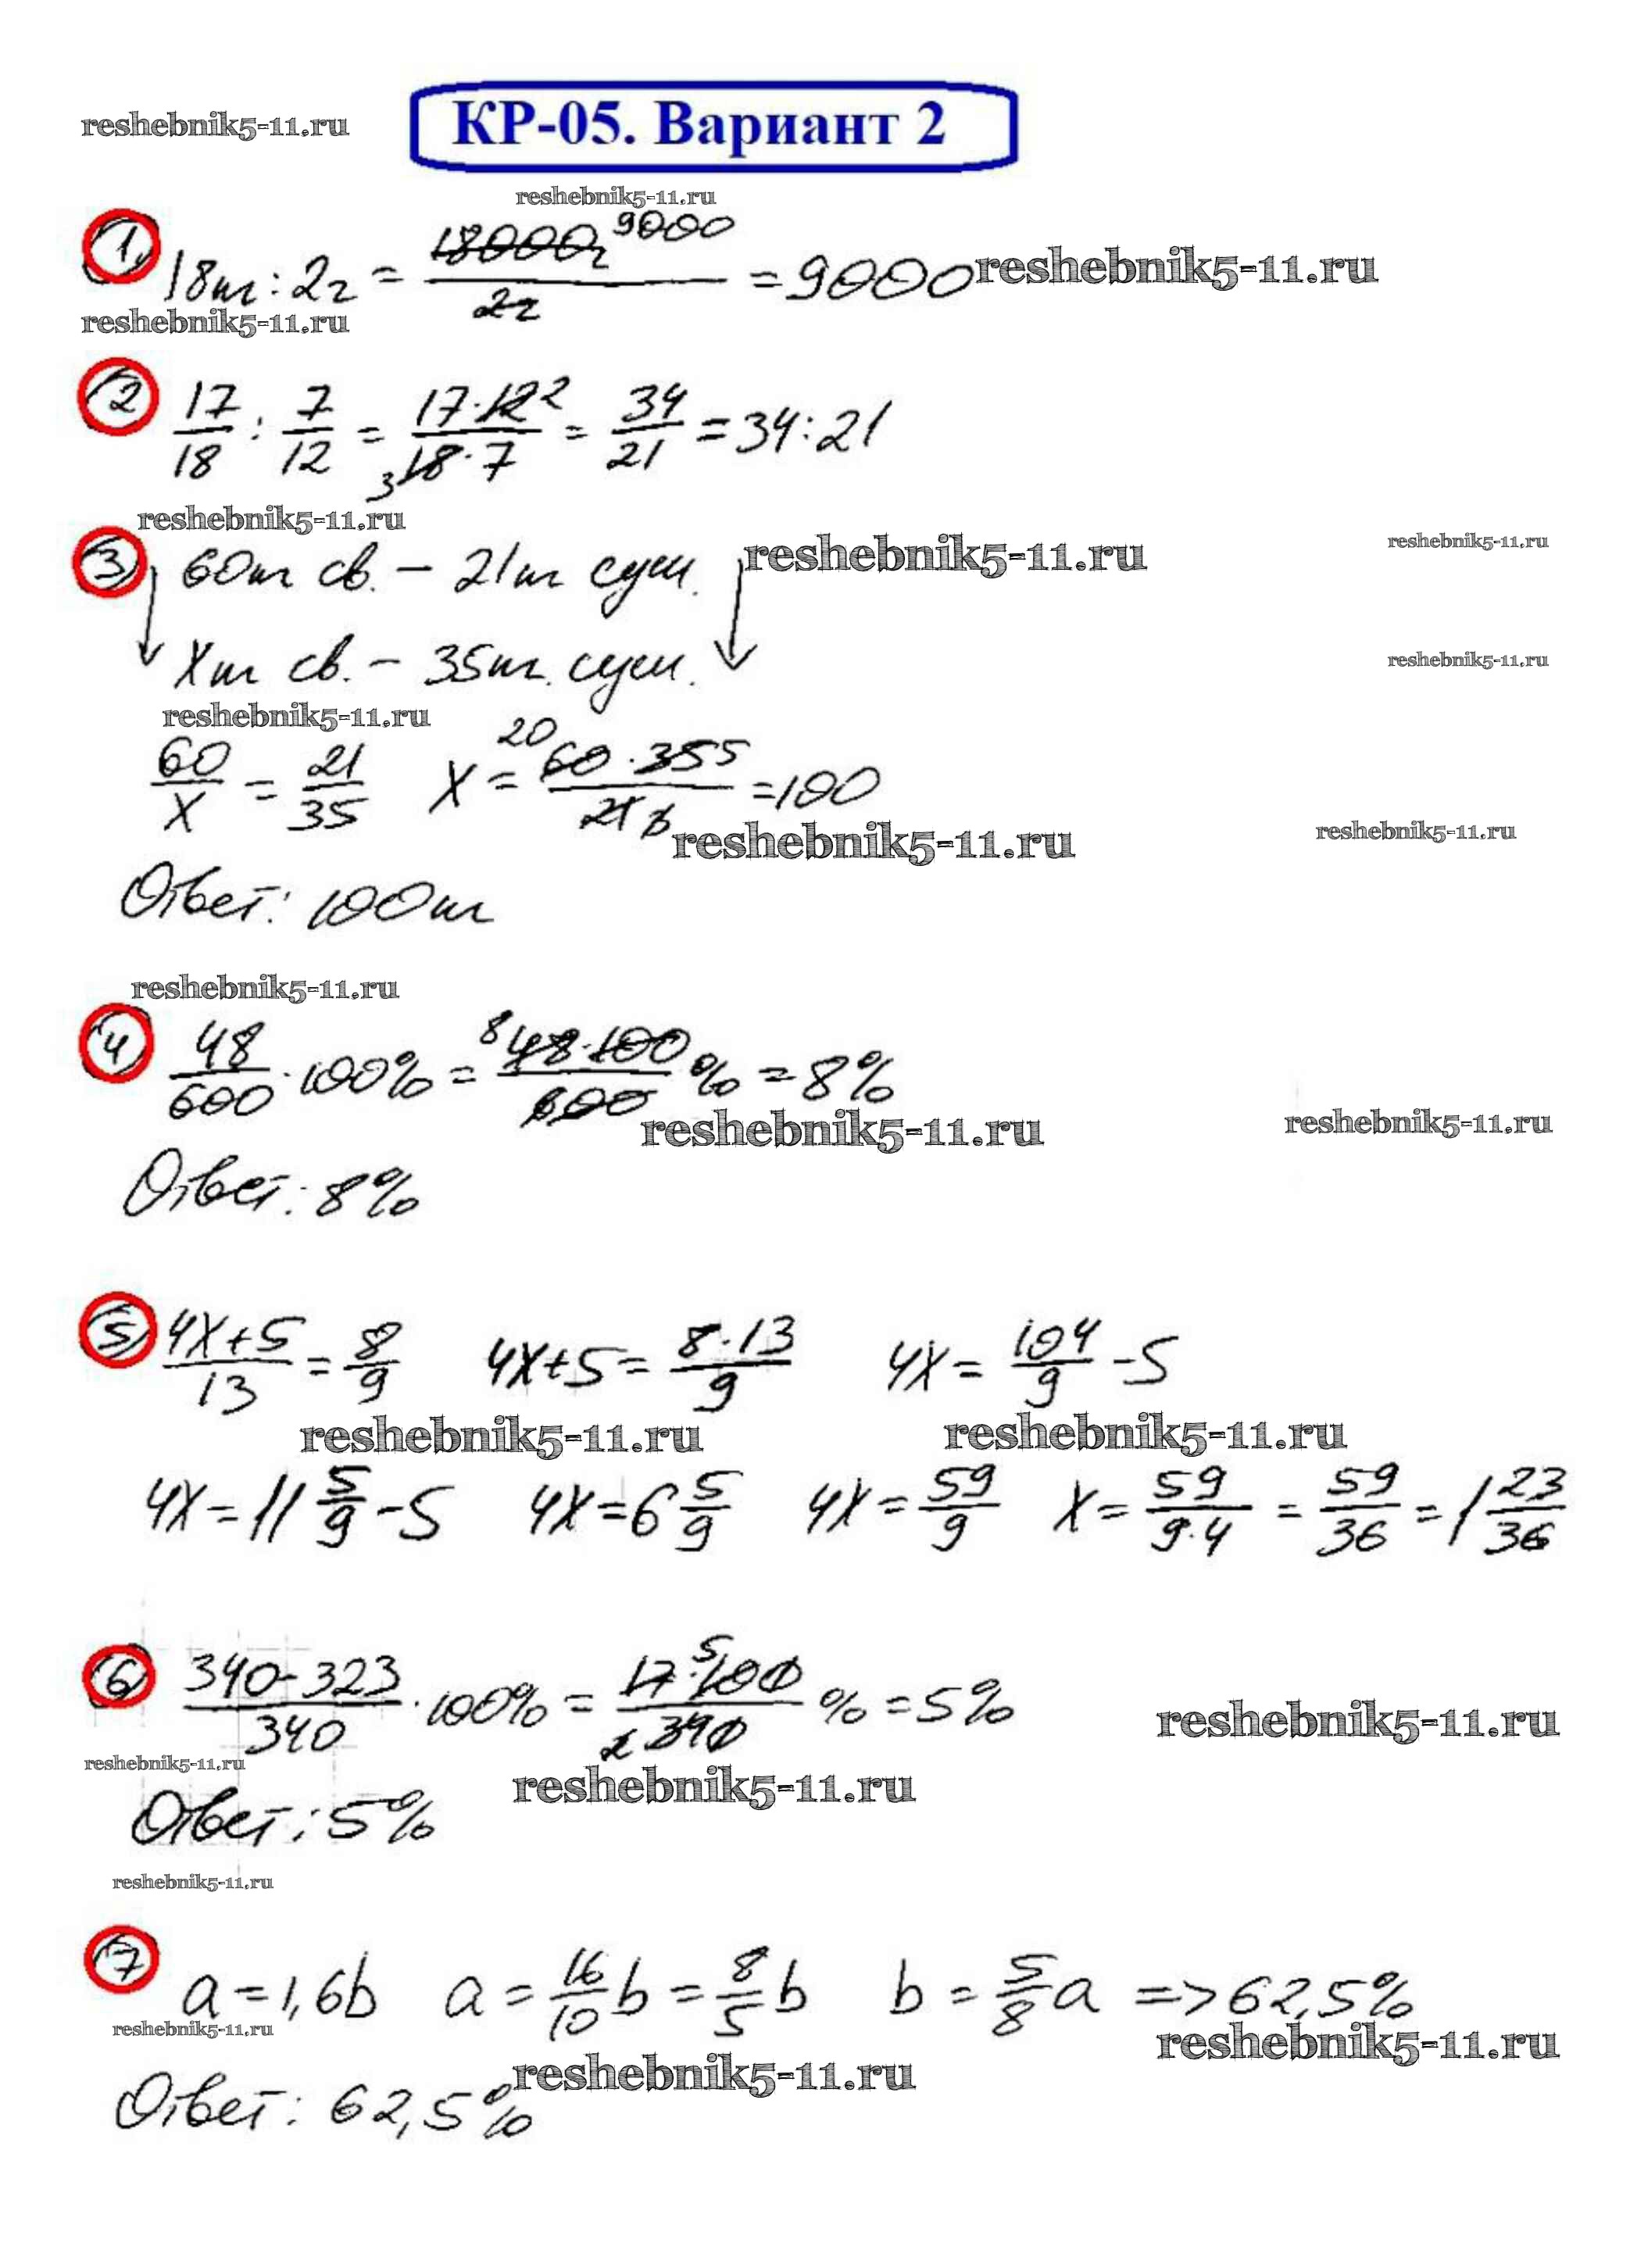 reshebnik5-11.ru
КР-05. Вариант 2
reshebnik5-11.ru
1) 18кг : 2г = 18000г 9000 / 2г = 9000 reshebnik5-11.ru
reshebnik5-11.ru
2) 17/18 : 7/12 = 17·12 2 / 3 18·7 = 34/21 = 34:21
reshebnik5-11.ru
3) 60кг св. – 21кг суш. reshebnik5-11.ru reshebnik5-11.ru
Xкг св. – 35кг. суш. reshebnik5-11.ru
reshebnik5-11.ru
60/X = 21/35 X = 20 60·35 5 / 21 = 100
reshebnik5-11.ru reshebnik5-11.ru
Ответ: 100кг
reshebnik5-11.ru
4) 48/600 · 100% = 8 48·100 / 600 % = 8%
reshebnik5-11.ru reshebnik5-11.ru
Ответ: 8%
5) 4X+5 / 13 = 8/9 4X+5 = 8·13 / 9 4X = 104/9 - 5
reshebnik5-11.ru reshebnik5-11.ru
4X = 11 5/9 - 5 4X = 6 5/9 4X = 59/9 X = 59 / 9·4 = 59/36 = 1 23/36
6) 340-323 / 340 · 100% = 17·100 5 / 2 340 % = 5% reshebnik5-11.ru
reshebnik5-11.ru reshebnik5-11.ru
Ответ: 5%
reshebnik5-11.ru
7) a = 1,6b a = 16/10 b = 8/5 b b = 5/8 a => 62,5%
reshebnik5-11.ru reshebnik5-11.ru
reshebnik5-11.ru
Ответ: 62,5%